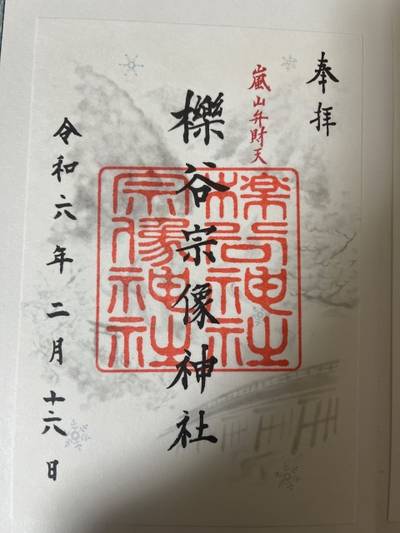 奉拝
嵐山弁財天
櫟谷宗像神社
櫟谷神社
宗像神社
令和六年二月十六日